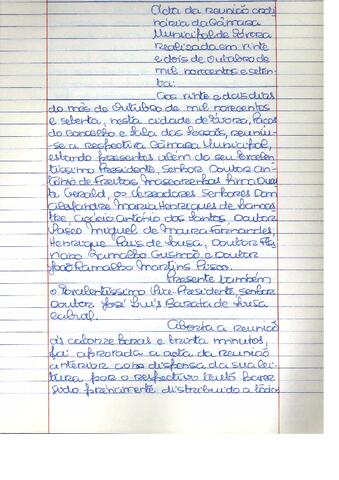 Acta da reunião ordi-
nária da Câmara
Municipal de Évora
realizada em vinte
e dois de outubro de
mil novecentos e seten-
ta:
Aos vinte e dois dias
do mês de Outubro de mil novecentos
e setenta, nesta cidade de Évora, Paços
do Concelho e Sala das Sessões, reuniu-
se a respectiva Câmara Municipal,
estando presentes além do seu Excelen-
tíssimo Presidente, Senhor Doutor An-
tónio de Freitas Mascarenhas Lima Du-
Gerald, os Vereadores Senhores Dom
Alexandre Maria Henriques de Lancas-
tre, António dos Santos, Doutor
Vasco Miguel de Moura Fernandes,
Henrique Pais de Sousa, Doutor
Ramalho Gusmão e Doutor
João Ramalho Martins Pisco.
Presente também
o Excelentíssimo Vice-Presidente, senhor
Doutor José Luís Barata de Sousa
Cabral.
Aberta a reunião
às catorze horas e trinta minutos,
foi aprovada a acta da reunião
anterior com dispensa da sua lei-
tura por o respectivo texto haver
sido previamente distribuído a todos